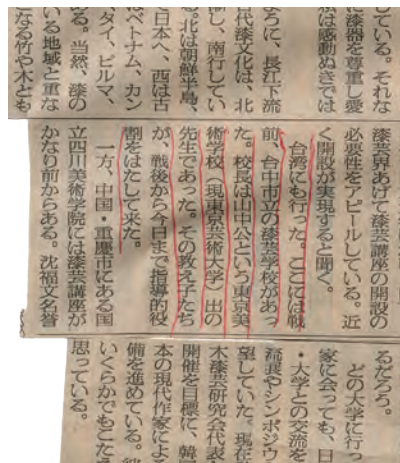 している。それな
に漆器を尊重し愛
私は感動ぬきでは
ように、長江下流
古代漆文化は、北
播し、南行してい
る。北は朝鮮半島、
て日本へ、西は古
はベトナム、カン
、タイ、ビルマ、
る。当然、漆の
いる地域と重な
となる竹や木とも
漆芸界あげて漆芸講座の開設の
必要性をアピールしている。近
く開設が実現すると聞く。
台湾にも行った。ここには戦
前、台中市立の漆芸学校があっ
た。校長は山中公という東京美
術学校（現東京芸術大学）出の
先生であった。その教え子たち
が、戦後から今日まで指導的役
割をはたして来た。
一方、中国・重慶市にある国
立四川美術学院には漆芸講座が
かなり前からある。沈福文名誉
るだろう。
どの大学に行っ
家に会っても、日
・大学との交流を
流展やシンポジウ
望していた。現在
木漆芸研究会代表
開催を目標に、韓
本の現代作家によ
備を進めている。
いくらかでもこたえ
思っている。